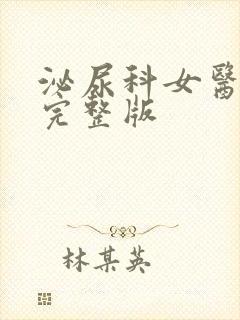 泌尿科女醫
完整版
林某英